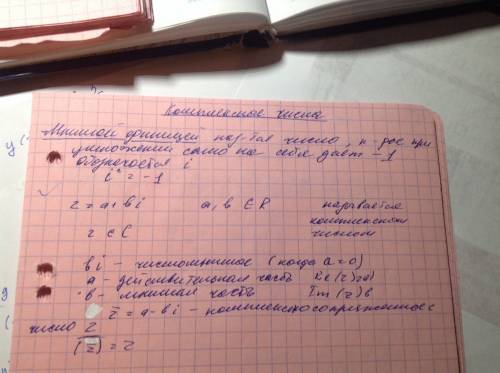 Комплексные числа
Мнимой единицей наз-тся число, к-рое при
умножении само на себя дает -1
обозначается i
i² = -1
z = a + bi a, b ∈ R называется
комплексным
z ∈ C числом
bi - чисто мнимое (когда a = 0)
a - действительная часть Re(z)=a
b - мнимая часть Im(z) b
z̅ = a - bi - комплексно сопряженное с
число z
(z̅) = z